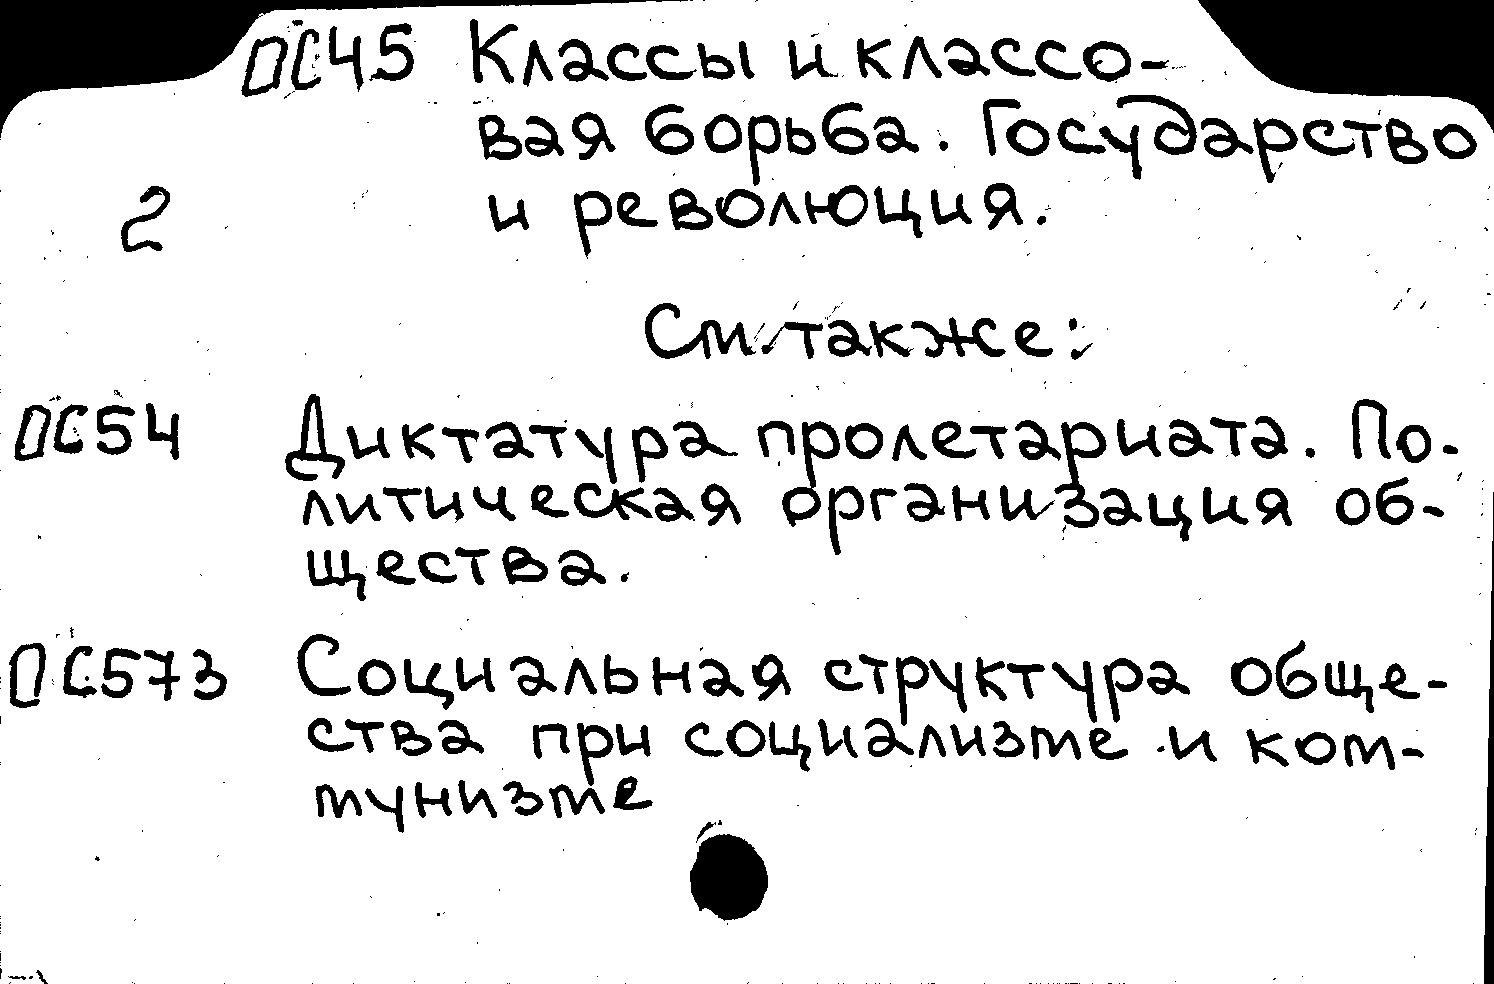 ОС45 Классы и классо-
вая борьба. Государство
2 и революция.
См. также:
ОС54 Диктатура пролетариата. По-
литическая организация об-
щества.
ОС573 Социальная структура обще-
ства при социализме и ком-
мунизме